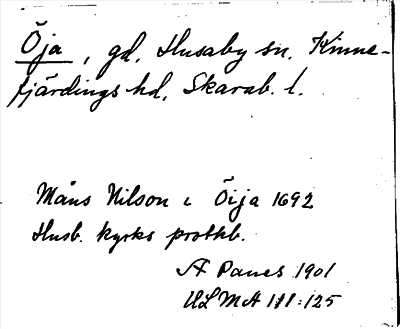 Öja, gd. Husaby sn. Kinne-
fjärdings hd. Skarab. l.
Måns Nilson i Öija 1692
Husb. kyrks protkb.
A Palmes 1901
ULMA 111:125